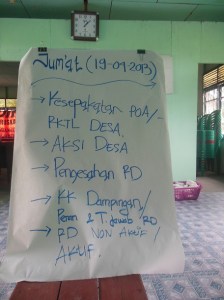 Jum'at (19-04-2013)
→ Kesepakatan POA/-
RKTL DESA.
→ AKSI DESA
→ Pengesahan RD
→ KK Dampingan/
Peran & T. Jawab RD
→ RD NON AKTIF /
AKTIF.